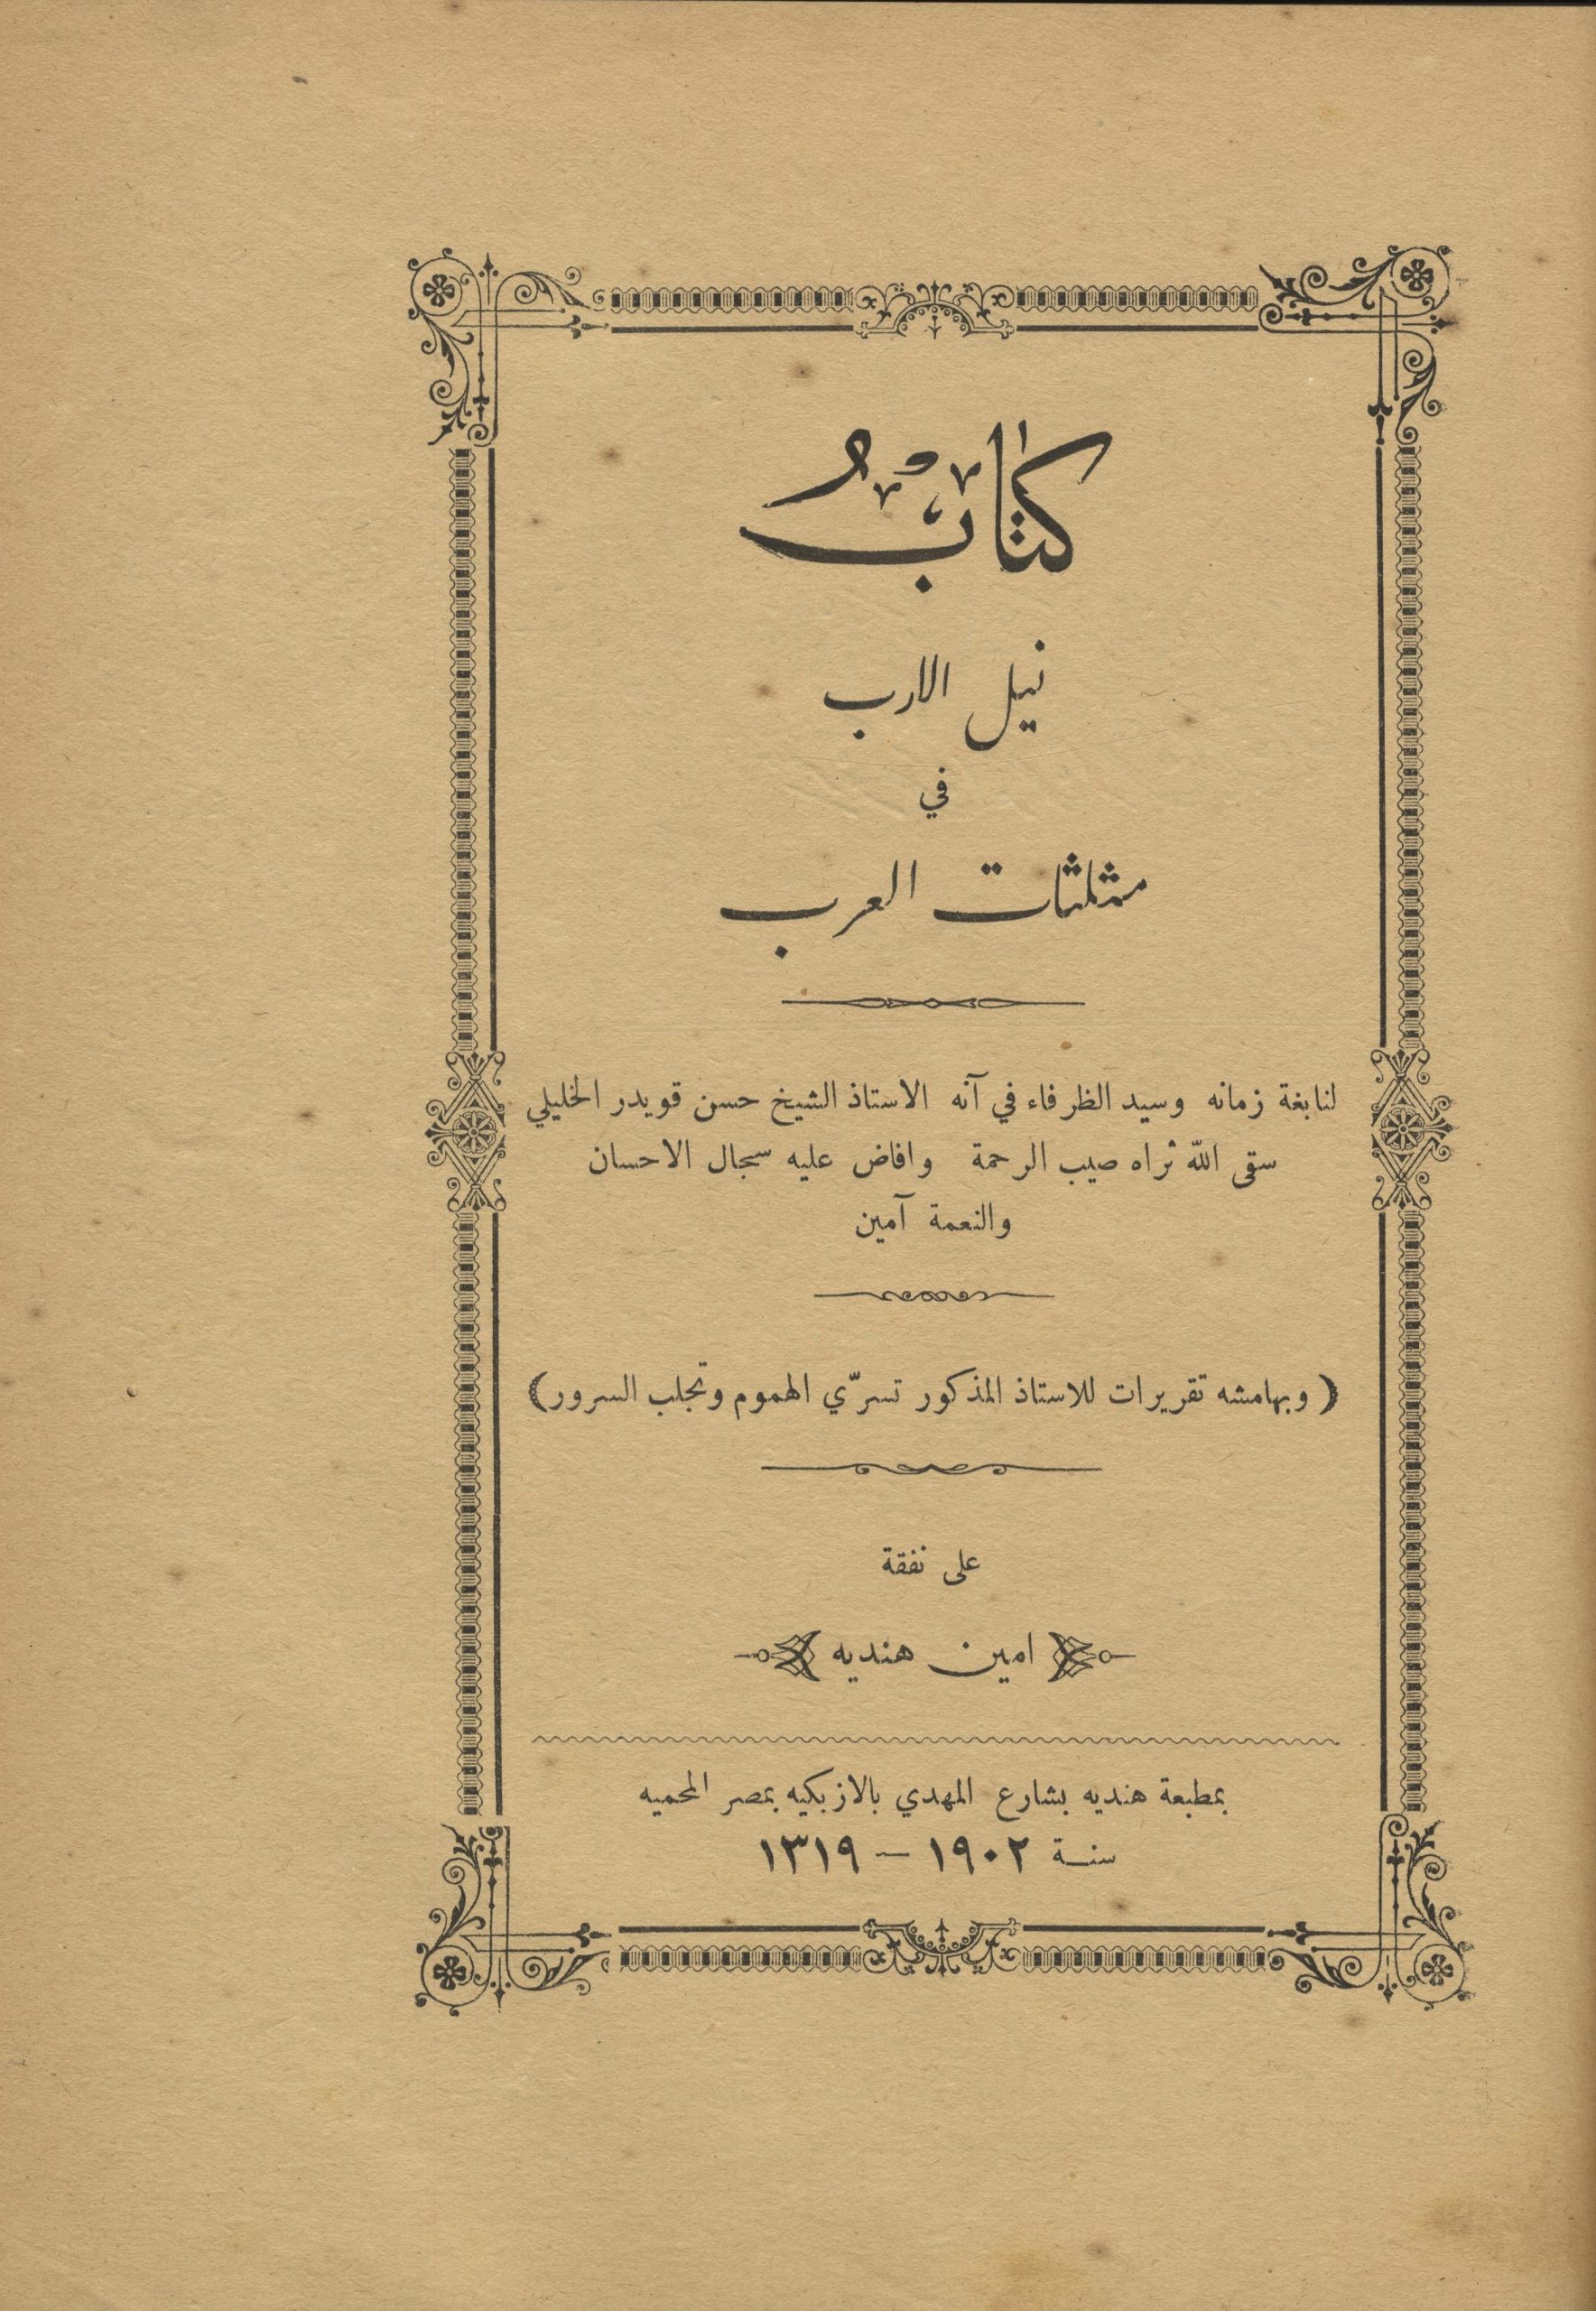 كتاب
نيل الارب
في
مثلثات العرب
لنابغة زمانه وسيد الظرفاء في آنه الاستاذ الشيخ حسن قويدر الخليلي
سقى الله ثراه صيب الرحمة وافاض عليه سجال الاحسان
والنعمة آمين
( وبهامشه تقريرات للاستاذ المذكور تسرّي الهموم وتجلب السرور )
على نفقة
امين هنديه
بمطبعة هنديه بشارع المهدي بالازبكيه بمصر المحميه
سنة ١٩٠٢ – ١٣١٩